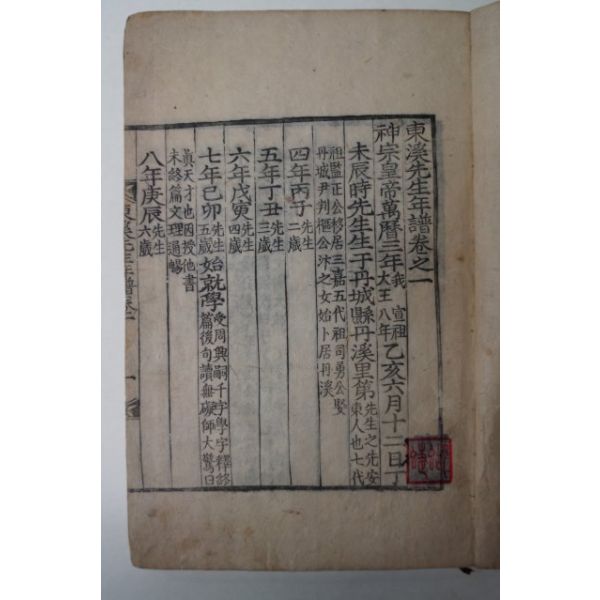 東溪先生年譜卷之一
神宗皇帝萬曆三年我 宣祖大王八年乙亥六月十二日丁
未辰時先生生于丹城縣丹溪里第先生之先安東人也七代
祖監正公移居三嘉五代祖司勇公娶
丹城尹判樞公汴之女始卜居丹溪
四年丙子先生二歲
五年丁丑先生三歲
六年戊寅先生四歲
七年己卯先生五歲始就學受周興嗣千字學字釋終篇後句讀無礙師大驚曰
眞天才也因授他書
未終篇文理通暢
八年庚辰先生六歲
東溪先生年譜卷一